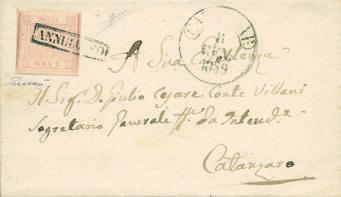 ANNULLATO
GRA 1
8
GEN
1859
A Sua Eccellenza
Il Sig.r D. Giulio Cesare Conte Villani
Segretario Generale ff. da Intend.e
Catanzaro